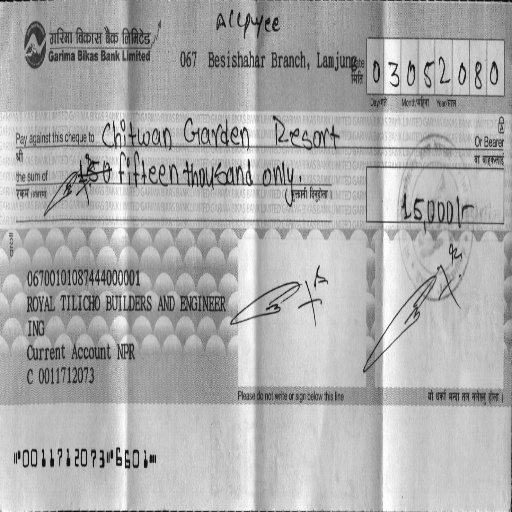 A/c payee
गरिमा विकास बैंक लिमिटेड
Garima Bikas Bank Limited
067 Besishahar Branch, Lamjung
Date
मिति
03052080
Day/गते Month/महिना Year/साल
Pay against this cheque to Chitwan Garden Resort Or Bearer
श्री वा वाहकलाई
the sum of fifteen thousand only.
रकम
15,000/-
06700101087444000001
ROYAL TILICHO BUILDERS AND ENGINEER
ING
Current Account NPR
C 0011712073
Please do not write or sign below this line
यो धर्का भन्दा तल नलेख्नु होला ।
⑈0011712073⑈6601⑈